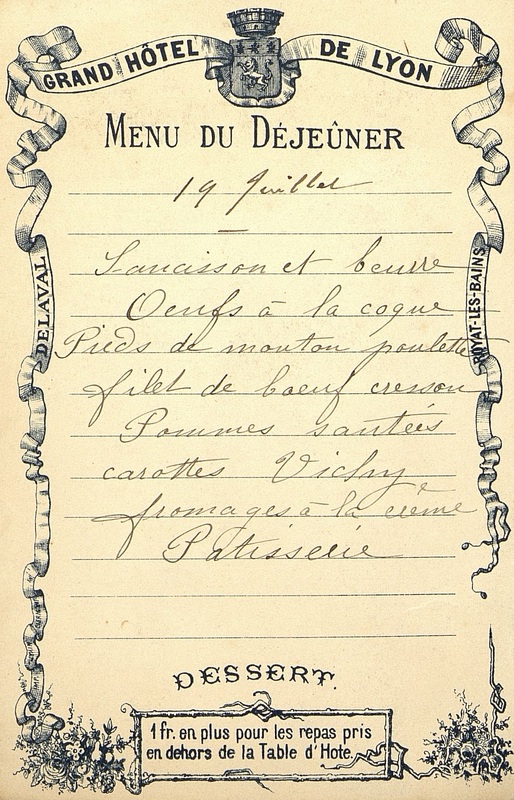 GRAND HÔTEL DE LYON
MENU DU DÉJEÛNER
19 Juillet
Saucisson et beurre
DELAVAL
ROYAT-LES-BAINS
Oeufs à la coque
Pieds de mouton poulette
filet de boeuf cresson
Pommes sautées
carottes Vichy
fromages à la crème
Patisserie
DESSERT.
1 fr. en plus pour les repas pris
en dehors de la Table d'Hote.